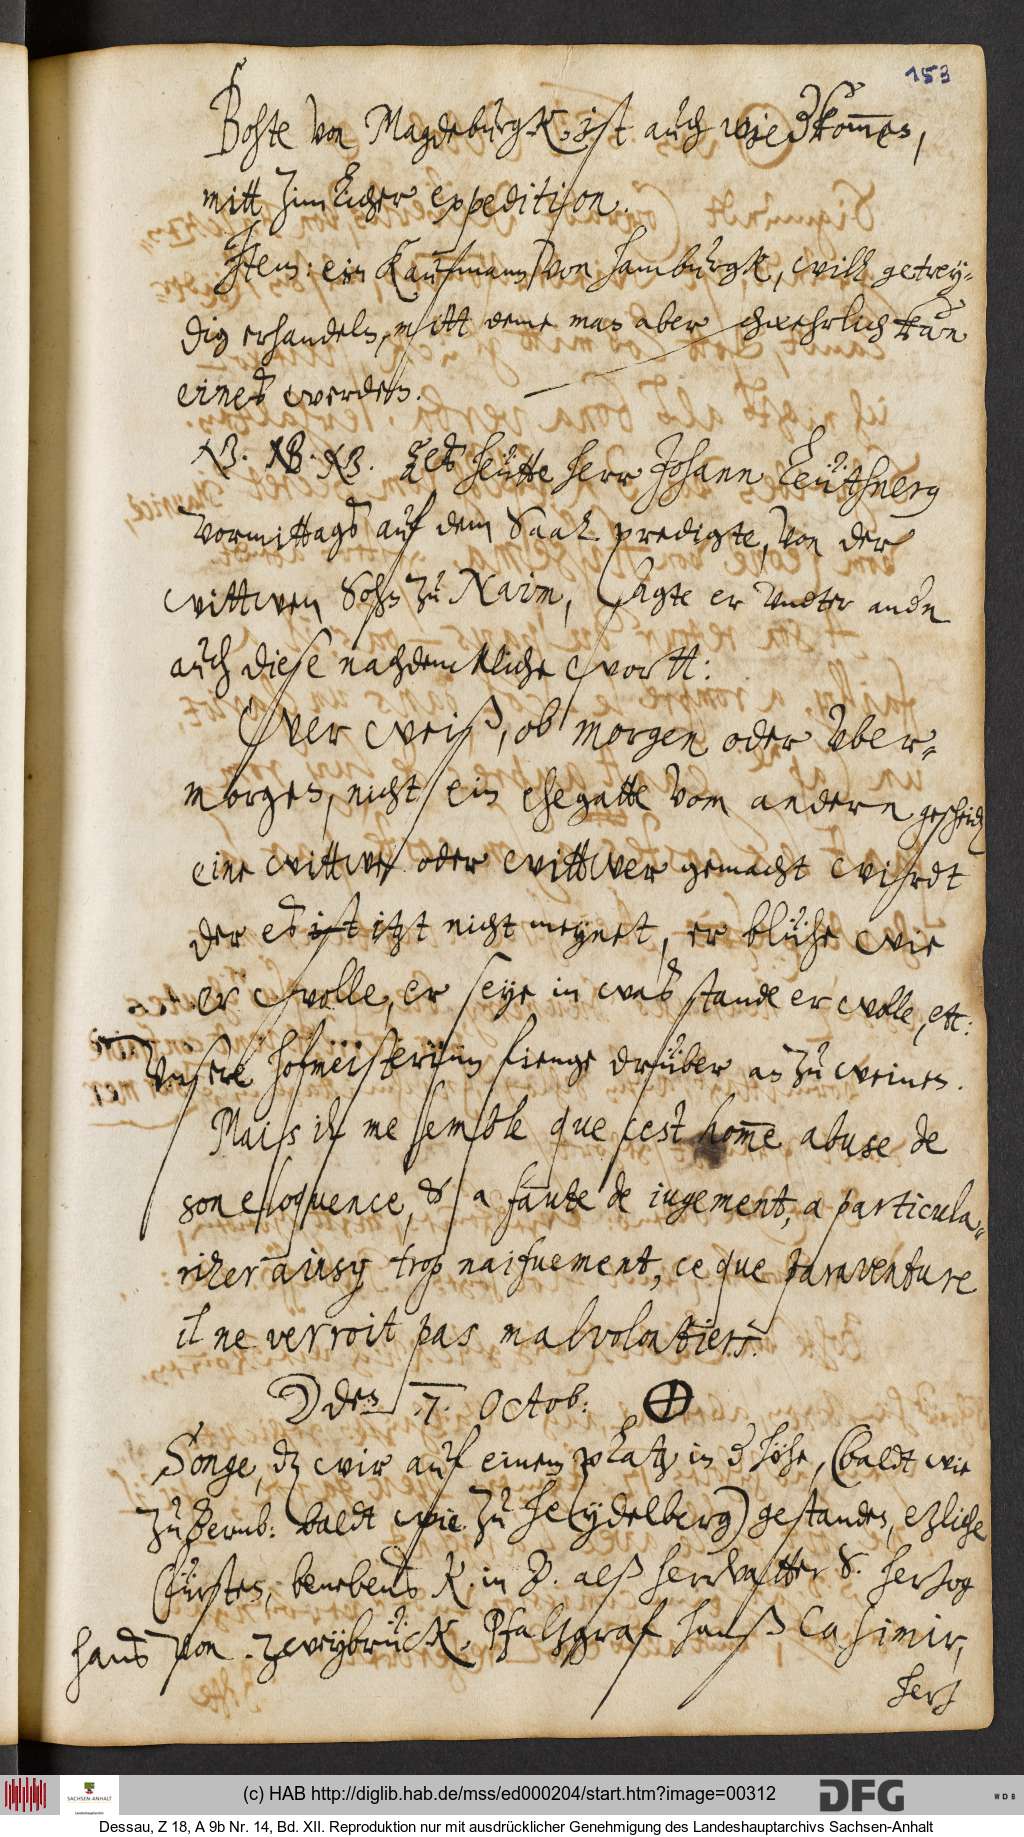 153
Bohte von Magdeburgk, ist auch wiedkom̄en,
mitt zimlicher expedition.
Item: ein Kaufmann von hamburgk, will getrey-
dig erhandeln, mitt deme man aber schwehrlich kan
eines werden.
NB. NB. NB. Als heütte herr Johann Leüthner
vormittags auf dem Saal predigte, von der
wittwen Sohn zu Naim, sagte er under andn
auch diese nachdenckliche wortt:
Wer weiß, ob morgen oder vber-
morgen, nicht ein ehegatte vom andern gescheidn
eine wittwe oder wittwer gemacht wihrdt
der es ist itzt nicht meynet, er blühe wie
er wolle, er seye in was stande er wolle, ett:
Vnsere hofmeisterinn fienge drüber an zu weinen.
Mais il me semble que cest hom̄e abuse de
son eloquence, & a faute de iugement, a particula-
rizer ainsy trop naifuement, ce que paraventure
il ne verroit pas malvolontiers.
☽ den 7. Octob: ⊕
Songe, dz wir auf einem platz in d höhe, (baldt wie
zu Bernb: baldt wie zu heydelberg) gestanden, ezliche
Fürsten, benebens K. in B. alß herrvatter & herzog
hans von zweybrück, Pfaltzgraf hanß Casimir,
herz
(c) HAB http://diglib.hab.de/mss/ed000204/start.htm?image=00312
SACHSEN-ANHALT
DFG
WDB
Dessau, Z 18, A 9b Nr. 14, Bd. XII. Reproduktion nur mit ausdrücklicher Genehmigung des Landeshauptarchivs Sachsen-Anhalt